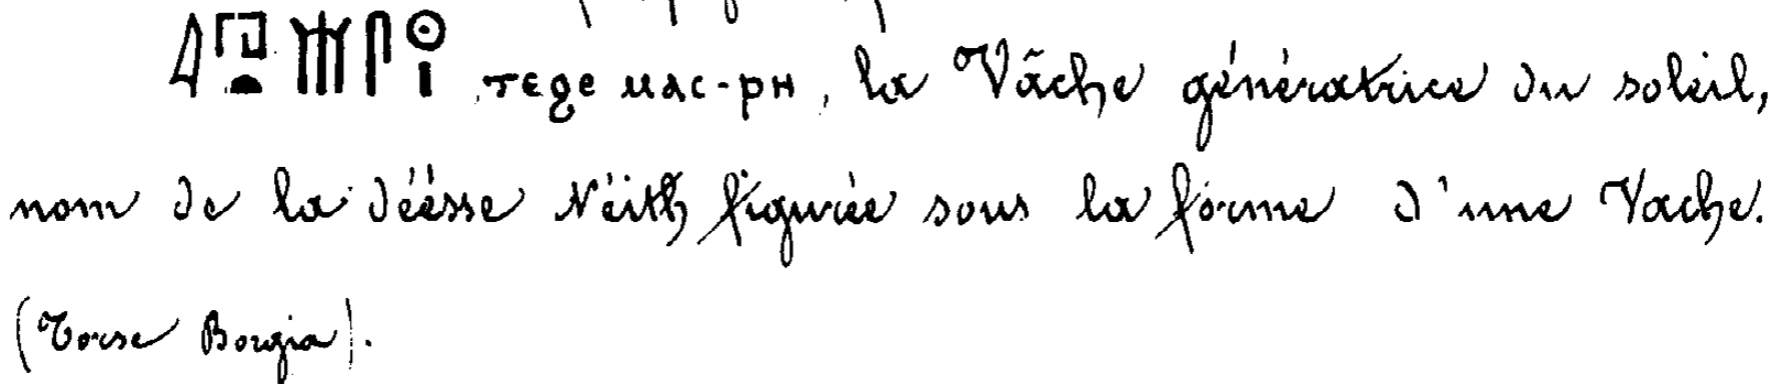 ⲧⲉϩⲉ ⲙⲁⲥ-ⲣⲏ, la Vâche génératrice du soleil,
nom de la déésse Néith figurée sous la forme d'une Vache.
(Torse Borgia).